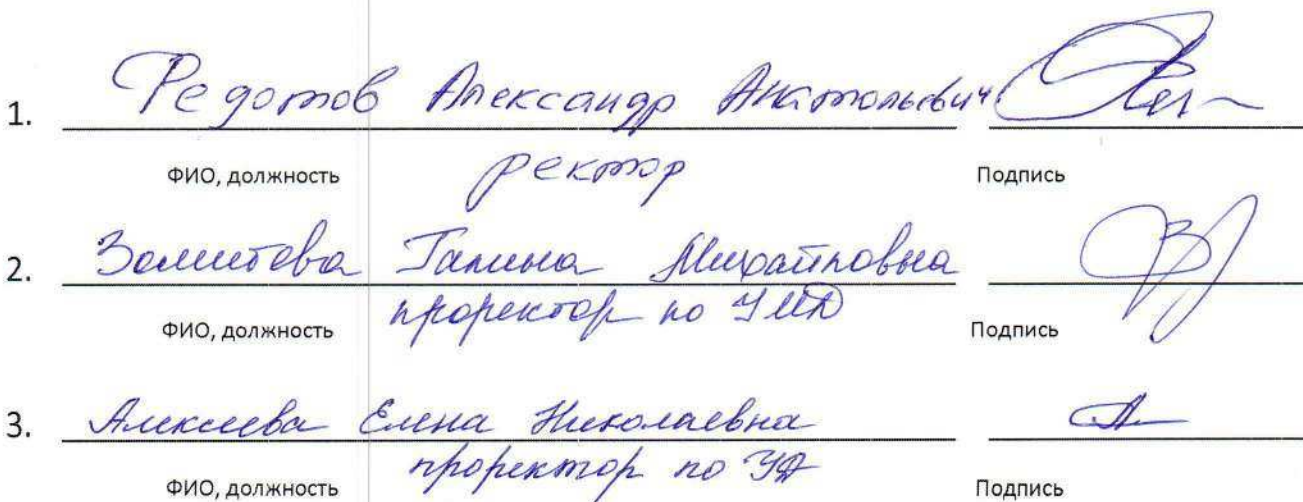 1. Федотов Александр Анатольевич
ФИО, должность ректор Подпись
2. Галина Михайловна
ФИО, должность проректор по УМД Подпись
3. Алексеева Елена Николаевна
ФИО, должность проректор по УД Подпись